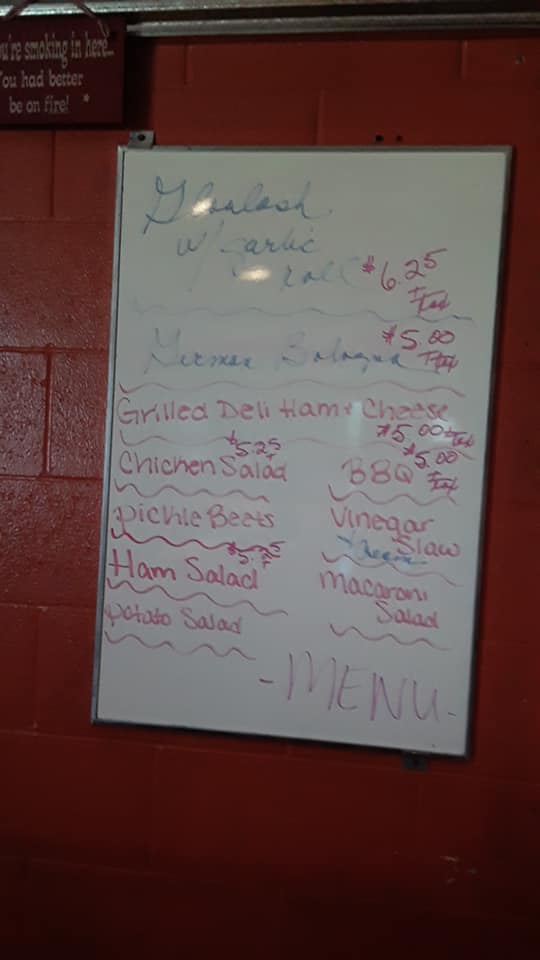 u're smoking in here...
You had better
be on fire!
Goulash
w/ garlic
roll $6.25
+ Tax
$5.00
German Bologna + Tax
Grilled Deli Ham + Cheese
$5.00 + Tax
$5.25 +
Chicken Salad
$5.00
BBQ + Tax
Pickle Beets
Vinegar
Slaw
+ Creamy
$5.25 +
Ham Salad
Macaroni
Salad
Potato Salad
- MENU -